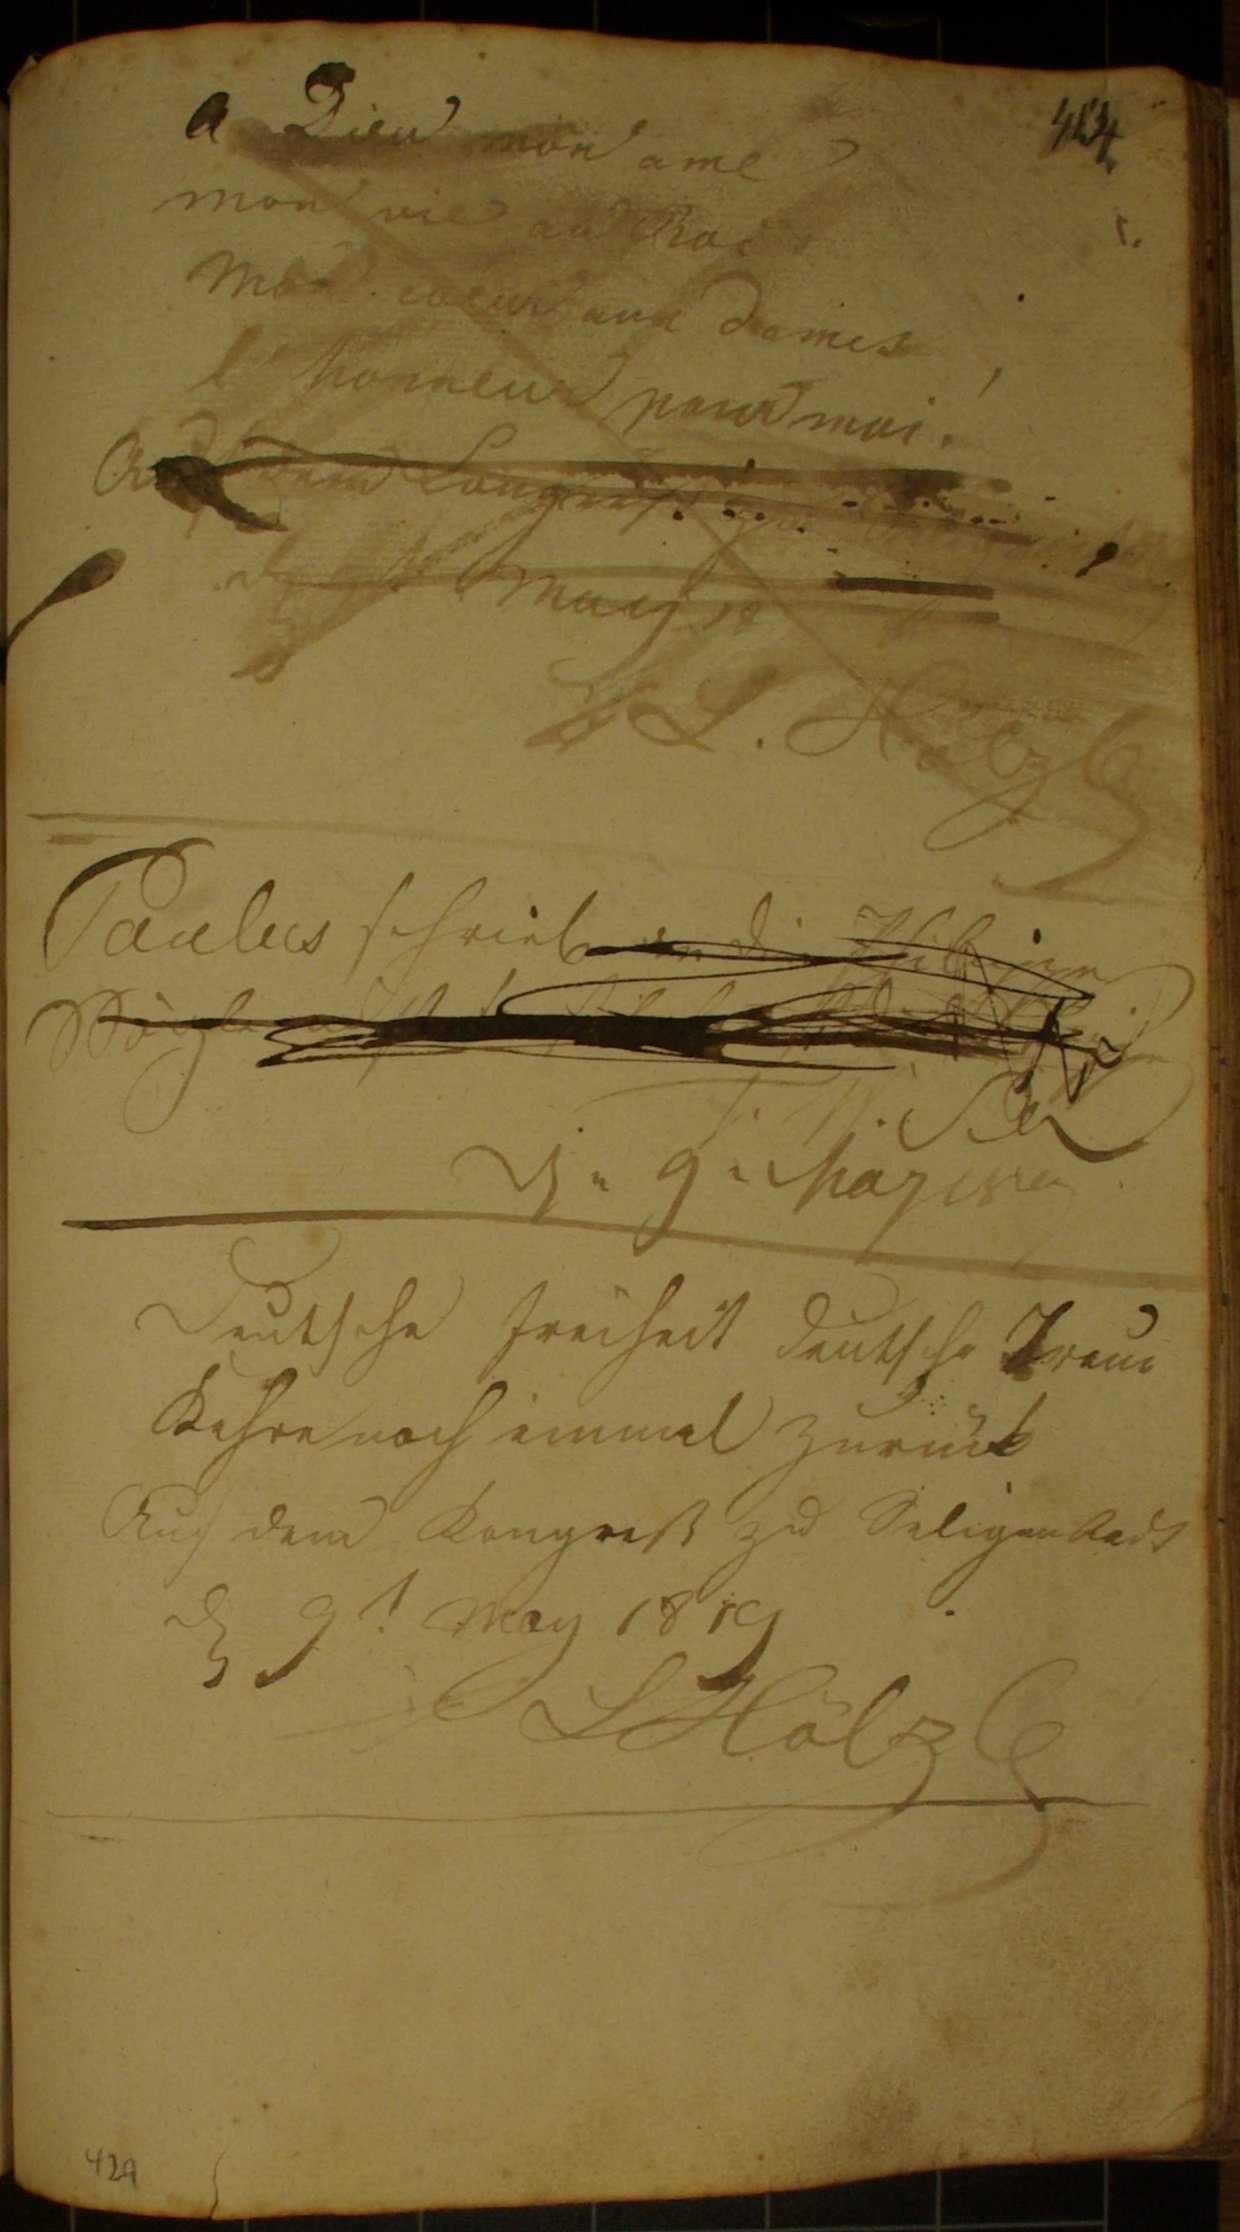 a Dieu mon ame
424
mon vie au Roi
Mon coeur aux dames
l'honneur pour moi.
Auf dem Congress zu
May
L. Hölzle
Paulus schrieb an die
d. 9 May
Deutsche Freiheit deutsche Treue
Kehre noch einmal zurück
Auf dem Kongreß zu Seligenstadt
d 9t May 1819
L Hölzle
429